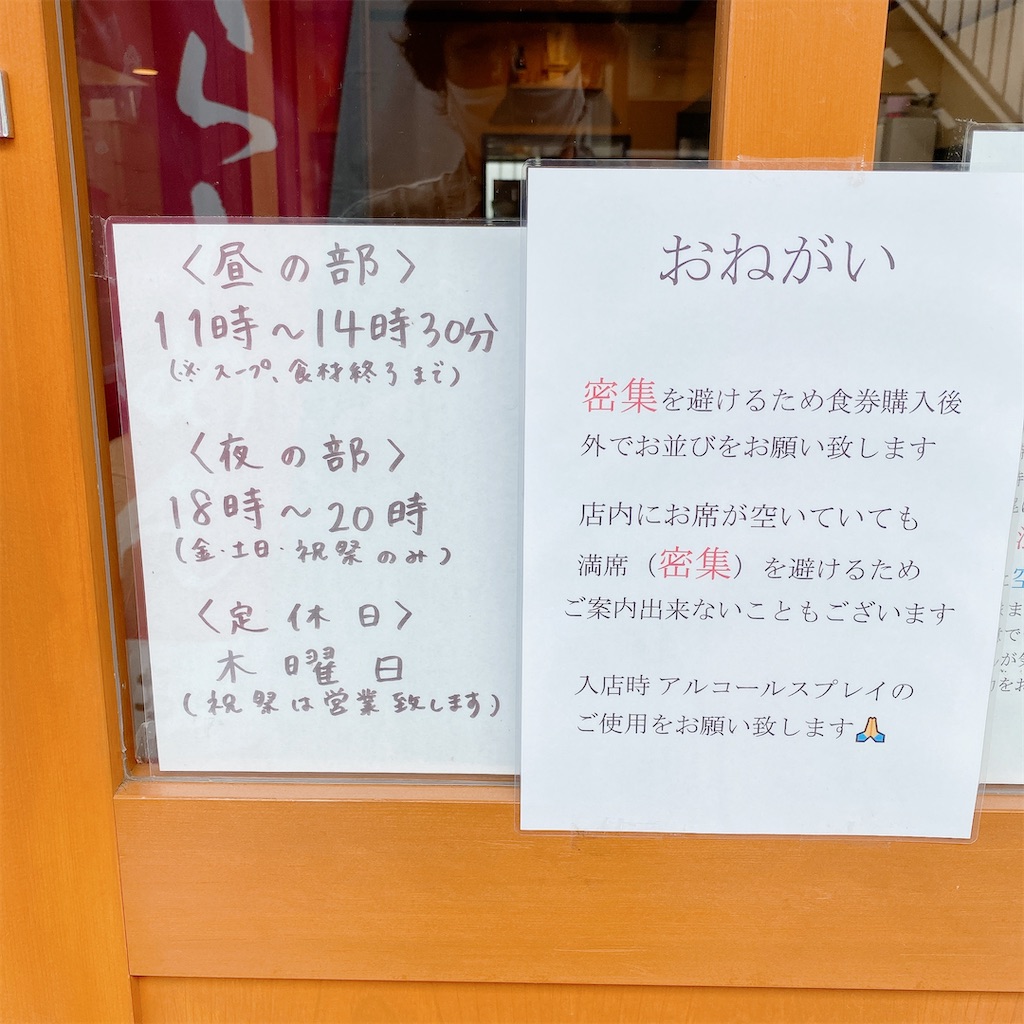 〈昼の部〉
11時~14時30分
(※スープ、食材終了まで)
〈夜の部〉
18時~20時
(金・土日・祝祭のみ)
〈定休日〉
木曜日
(祝祭は営業致します)
おねがい
密集を避けるため食券購入後
外でお並びをお願い致します
店内にお席が空いていても
満席(密集)を避けるため
ご案内出来ないこともございます
入店時 アルコールスプレイの
ご使用をお願い致します🙏